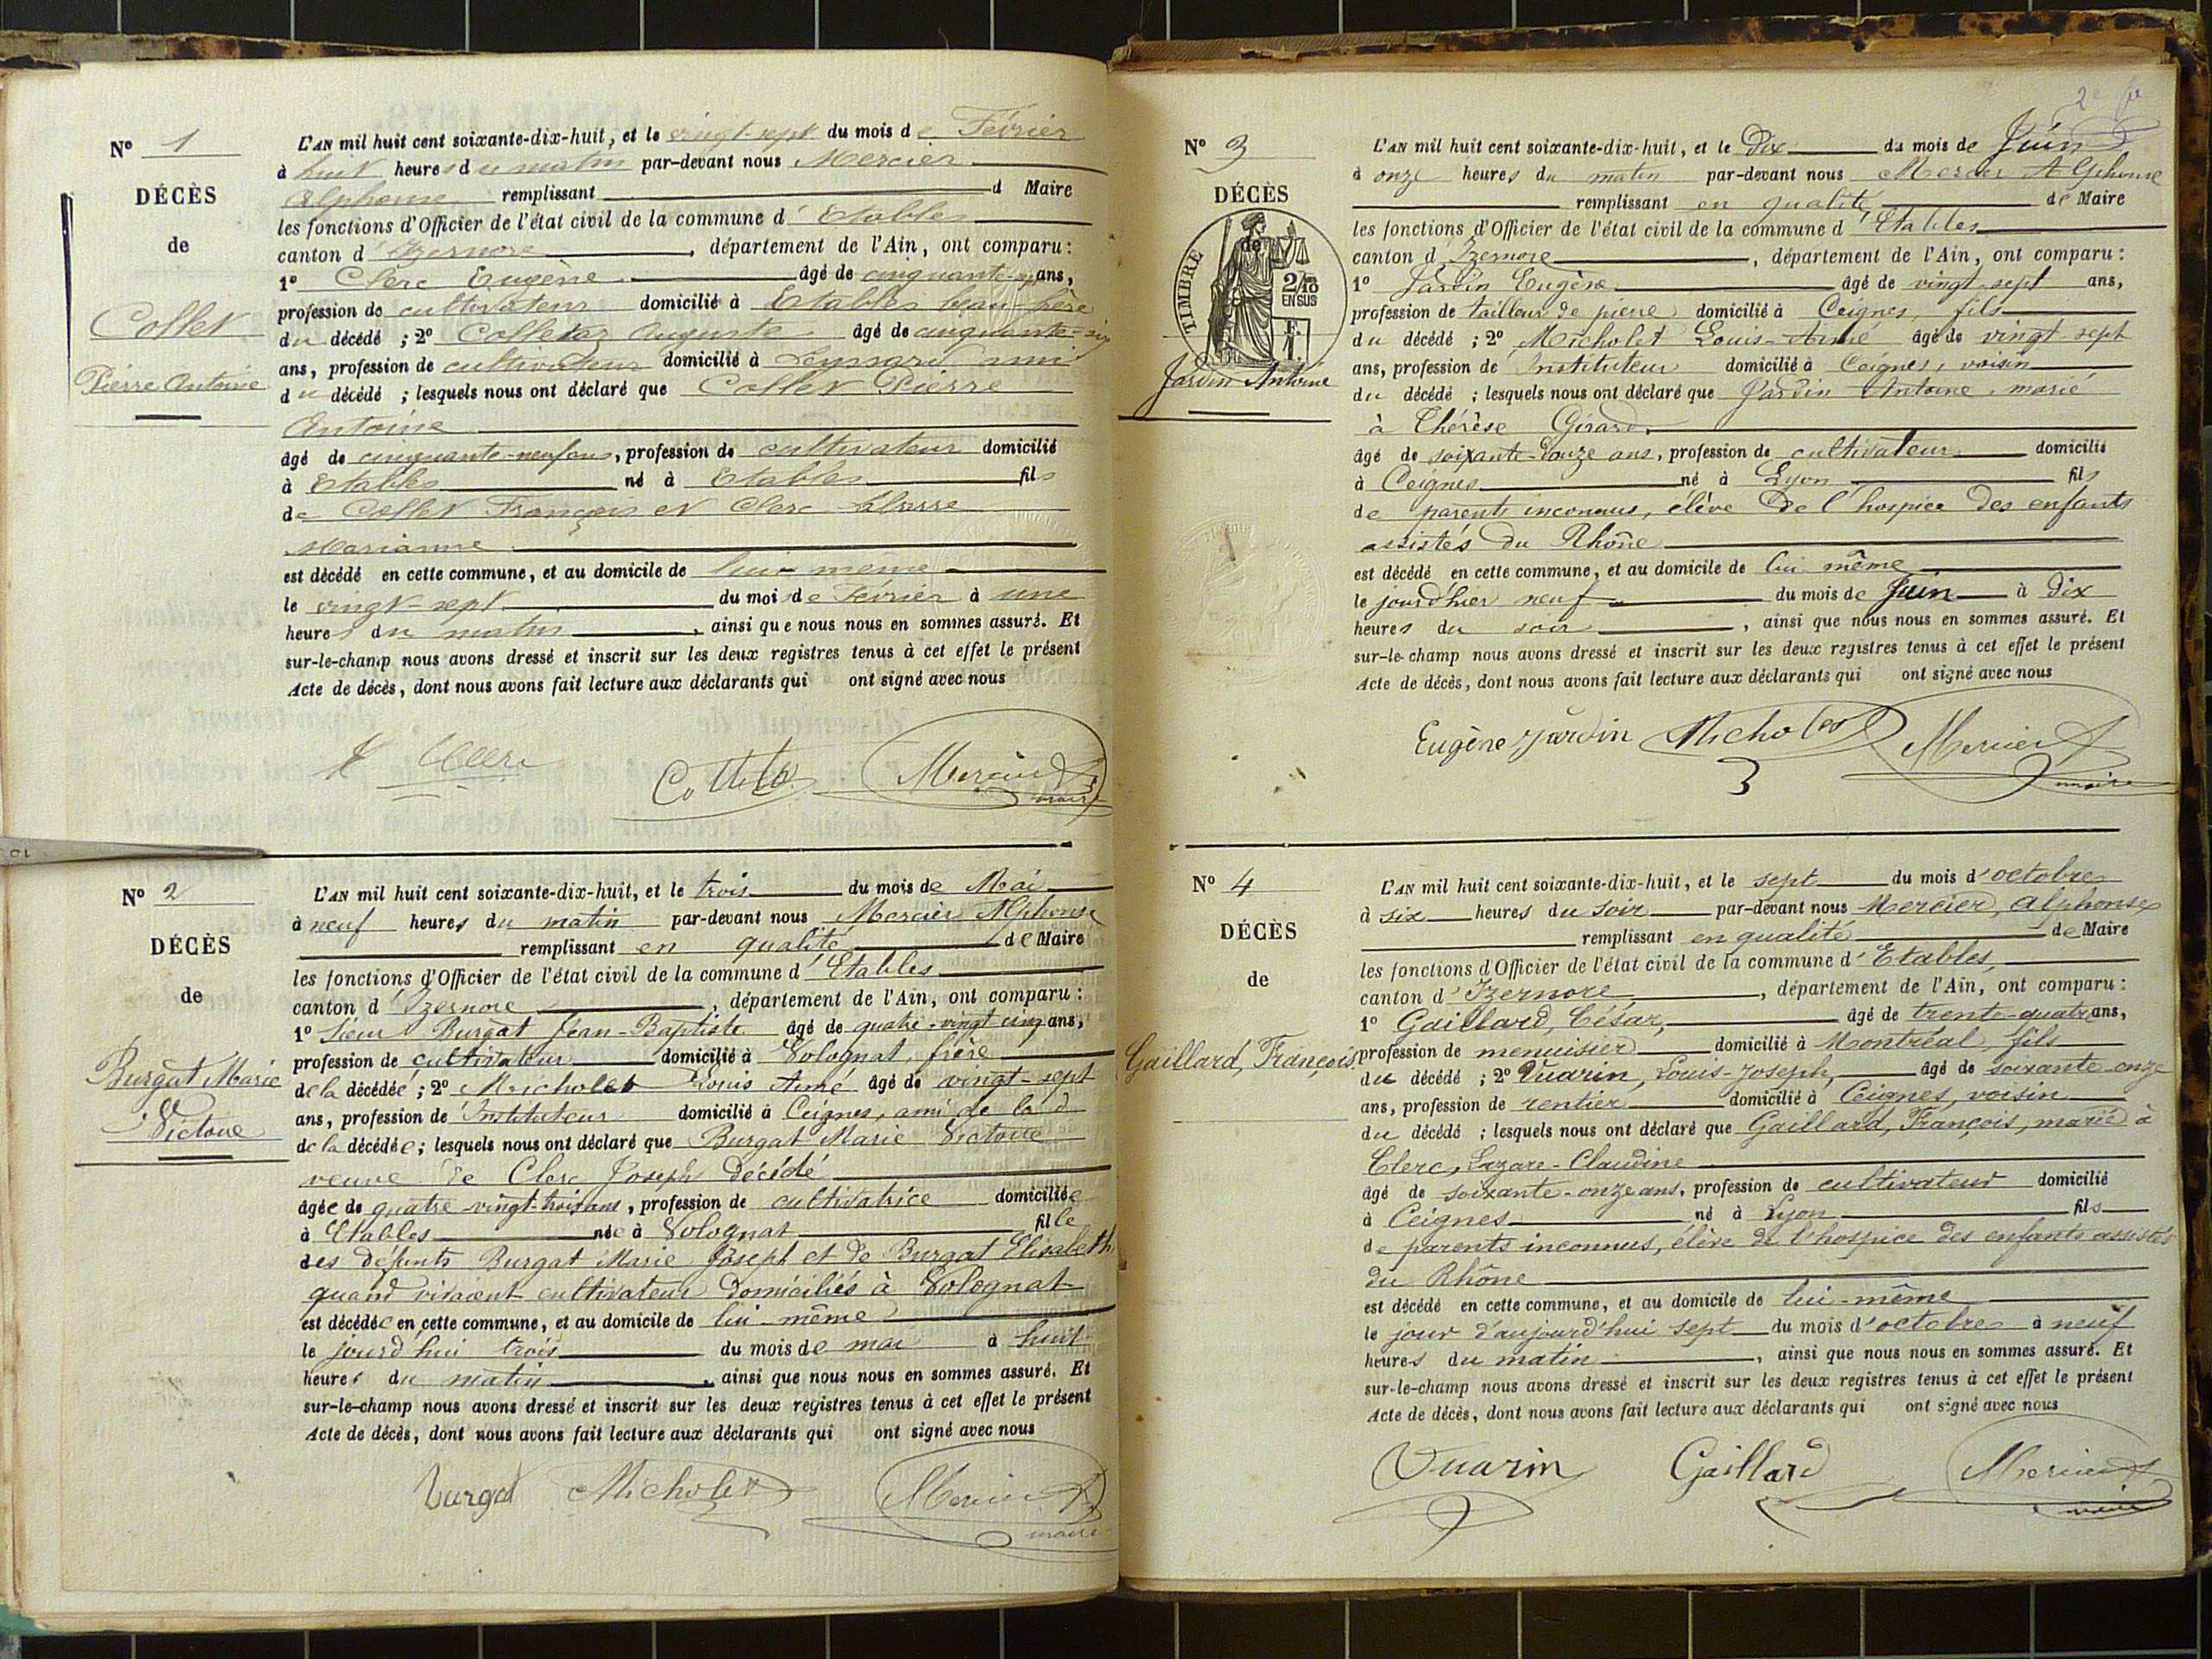 N° 1
DÉCÈS
de
Collet
Pierre Antoine
L'AN mil huit cent soixante-dix-huit, et le vingt-sept du mois de Février
à huit heures du matin par-devant nous Mercier
Alphonse remplissant d Maire
les fonctions d'Officier de l'état civil de la commune d' Etables
canton d' Izernore, département de l'Ain, ont comparu :
1° Clerc Eugène âgé de cinquante- ans,
profession de cultivateur domicilié à Etables beau-frère
du décédé ; 2° Colletaz Auguste âgé de cinquante-six
ans, profession de cultivateur domicilié à Leyssard ami
du décédé ; lesquels nous ont déclaré que Collet Pierre
Antoine
âgé de cinquante-neuf ans, profession de cultivateur domicilié
à Etables né à Etables fils
de Collet François et Clerc Labarre
Marianne
est décédé en cette commune, et au domicile de lui-même
le vingt-sept du mois de Février à une
heures du matin, ainsi que nous nous en sommes assuré. Et
sur-le-champ nous avons dressé et inscrit sur les deux registres tenus à cet effet le présent
Acte de décès, dont nous avons fait lecture aux déclarants qui ont signé avec nous
Mercier
maire
N° 2
DÉCÈS
de
Burgat Marie
Victoire
L'AN mil huit cent soixante-dix-huit, et le trois du mois de Mai
à neuf heures du matin par-devant nous Mercier Alphonse
remplissant en qualité de Maire
les fonctions d'Officier de l'état civil de la commune d' Etables
canton d' Izernore, département de l'Ain, ont comparu :
1° Sieur Burgat Jean-Baptiste âgé de quatre-vingt cinq ans,
profession de cultivateur domicilié à Volognat, frère
de la décédée ; 2° Micholet Louis Aimé âgé de vingt-sept
ans, profession de Instituteur domicilié à Ceignes, ami de la d
de la décédée ; lesquels nous ont déclaré que Burgat Marie Victoire
veuve de Clerc Joseph décédé
âgée de quatre-vingt-trois ans, profession de cultivatrice domiciliée
à Etables née à Volognat fille
des défunts Burgat Marie Joseph et de Burgat Elisabeth
quand vivaient cultivateurs domiciliés à Volognat
est décédée en cette commune, et au domicile de lui-même
le jourd'hui trois du mois de mai à huit
heures du matin, ainsi que nous nous en sommes assuré. Et
sur-le-champ nous avons dressé et inscrit sur les deux registres tenus à cet effet le présent
Acte de décès, dont nous avons fait lecture aux déclarants qui ont signé avec nous
Burgat Micholet Mercier
maire
N° 3
DÉCÈS
de
TIMBRE
2/10
EN SUS
Jardin Antoine
L'AN mil huit cent soixante-dix-huit, et le Dix du mois de Juin
à onze heures du matin par-devant nous Mercier Alphonse
remplissant en qualité de Maire
les fonctions d'Officier de l'état civil de la commune d' Etables
canton d' Izernore, département de l'Ain, ont comparu :
1° Jardin Eugène âgé de vingt-sept ans,
profession de tailleur de pierre domicilié à Ceignes, fils
du décédé ; 2° Micholet Louis-Aimé âgé de vingt-sept
ans, profession de Instituteur domicilié à Ceignes, voisin
du décédé ; lesquels nous ont déclaré que Jardin Antoine, marié
à Thérèse Girard,
âgé de soixante-douze ans, profession de cultivateur domicilié
à Ceignes né à Lyon fils
de parents inconnus, élève de l'hospice des enfants
assistés du Rhône
est décédé en cette commune, et au domicile de lui-même
le jourd'hier neuf du mois de Juin à Dix
heures du soir, ainsi que nous nous en sommes assuré. Et
sur-le-champ nous avons dressé et inscrit sur les deux registres tenus à cet effet le présent
Acte de décès, dont nous avons fait lecture aux déclarants qui ont signé avec nous
Eugène Jardin Micholet Mercier
maire
N° 4
DÉCÈS
de
Gaillard, François.
L'AN mil huit cent soixante-dix-huit, et le sept du mois d'octobre
à six heures du soir par-devant nous Mercier, Alphonse
remplissant en qualité de Maire
les fonctions d'Officier de l'état civil de la commune d' Etables,
canton d' Izernore, département de l'Ain, ont comparu :
1° Gaillard, César, âgé de trente-quatre ans,
profession de menuisier domicilié à Montréal, fils
du décédé ; 2° Vuarin, Louis-Joseph, âgé de soixante-onze
ans, profession de rentier domicilié à Ceignes, voisin
du décédé ; lesquels nous ont déclaré que Gaillard, François, marié à
Clerc, Lazare-Claudine
âgé de soixante-onze ans, profession de cultivateur domicilié
à Ceignes né à Lyon fils
de parents inconnus, élève de l'hospice des enfants assistés
du Rhône
est décédé en cette commune, et au domicile de lui-même
le jour d'aujourd'hui sept du mois d'octobre à neuf
heures du matin, ainsi que nous nous en sommes assuré. Et
sur-le-champ nous avons dressé et inscrit sur les deux registres tenus à cet effet le présent
Acte de décès, dont nous avons fait lecture aux déclarants qui ont signé avec nous
Vuarin Gaillard Mercier
maire